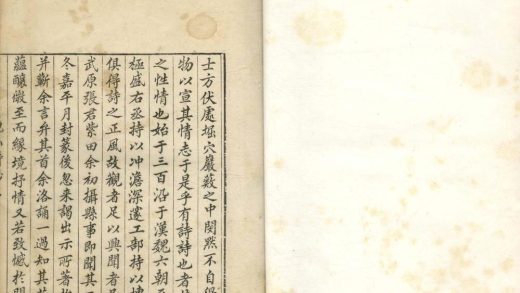 士方伏處堀穴巖薮之中閔然不自
物以宣其情志于是乎有詩詩也者
之性情也始于三百沿于漢魏六朝
極盛右丞持以冲澹深邃工部持以
俱得詩之正風故觀者足以興聞者
武原張君紫田余初攝縣事即聞其
冬嘉平月封篆後忽來謁出示所著
并蘄余言弁其首余洛誦一過知其
蘊釀醱至而緣境抒情又若致憾於